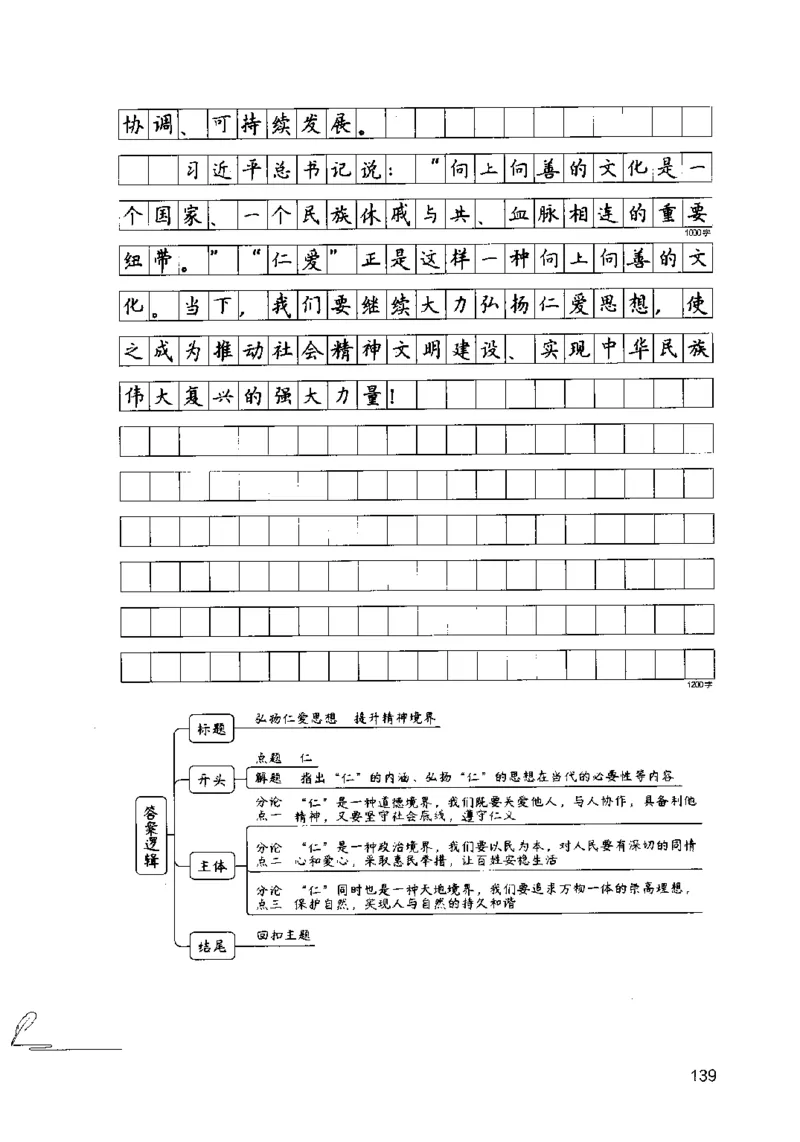 协调、可持续发展。
习近平总书记说：“向上向善的文化是一
个国家、一个民族休戚与共、血脉相连的重要
1000字
纽带。”“仁爱”正是这样一种向上向善的文
化。当下，我们要继续大力弘扬仁爱思想，使
之成为推动社会精神文明建设、实现中华民族
伟大复兴的强大力量！
1200字
标题
弘扬仁爱思想 提升精神境界
点题 仁
开头
解题 指出“仁”的内涵、弘扬“仁”的思想在当代的必要性等内容
答案逻辑
分论 “仁”是一种道德境界，我们既要关爱他人，与人协作，具备利他
点一 精神，又要坚守社会底线，遵守仁义
主体
分论 “仁”是一种政治境界，我们要以民为本，对人民要有深切的同情
点二 心和爱心，采取惠民举措，让百姓安稳生活
分论 “仁”同时也是一种天地境界，我们要追求万物一体的崇高理想，
点三 保护自然，实现人与自然的持久和谐
结尾
回扣主题
139